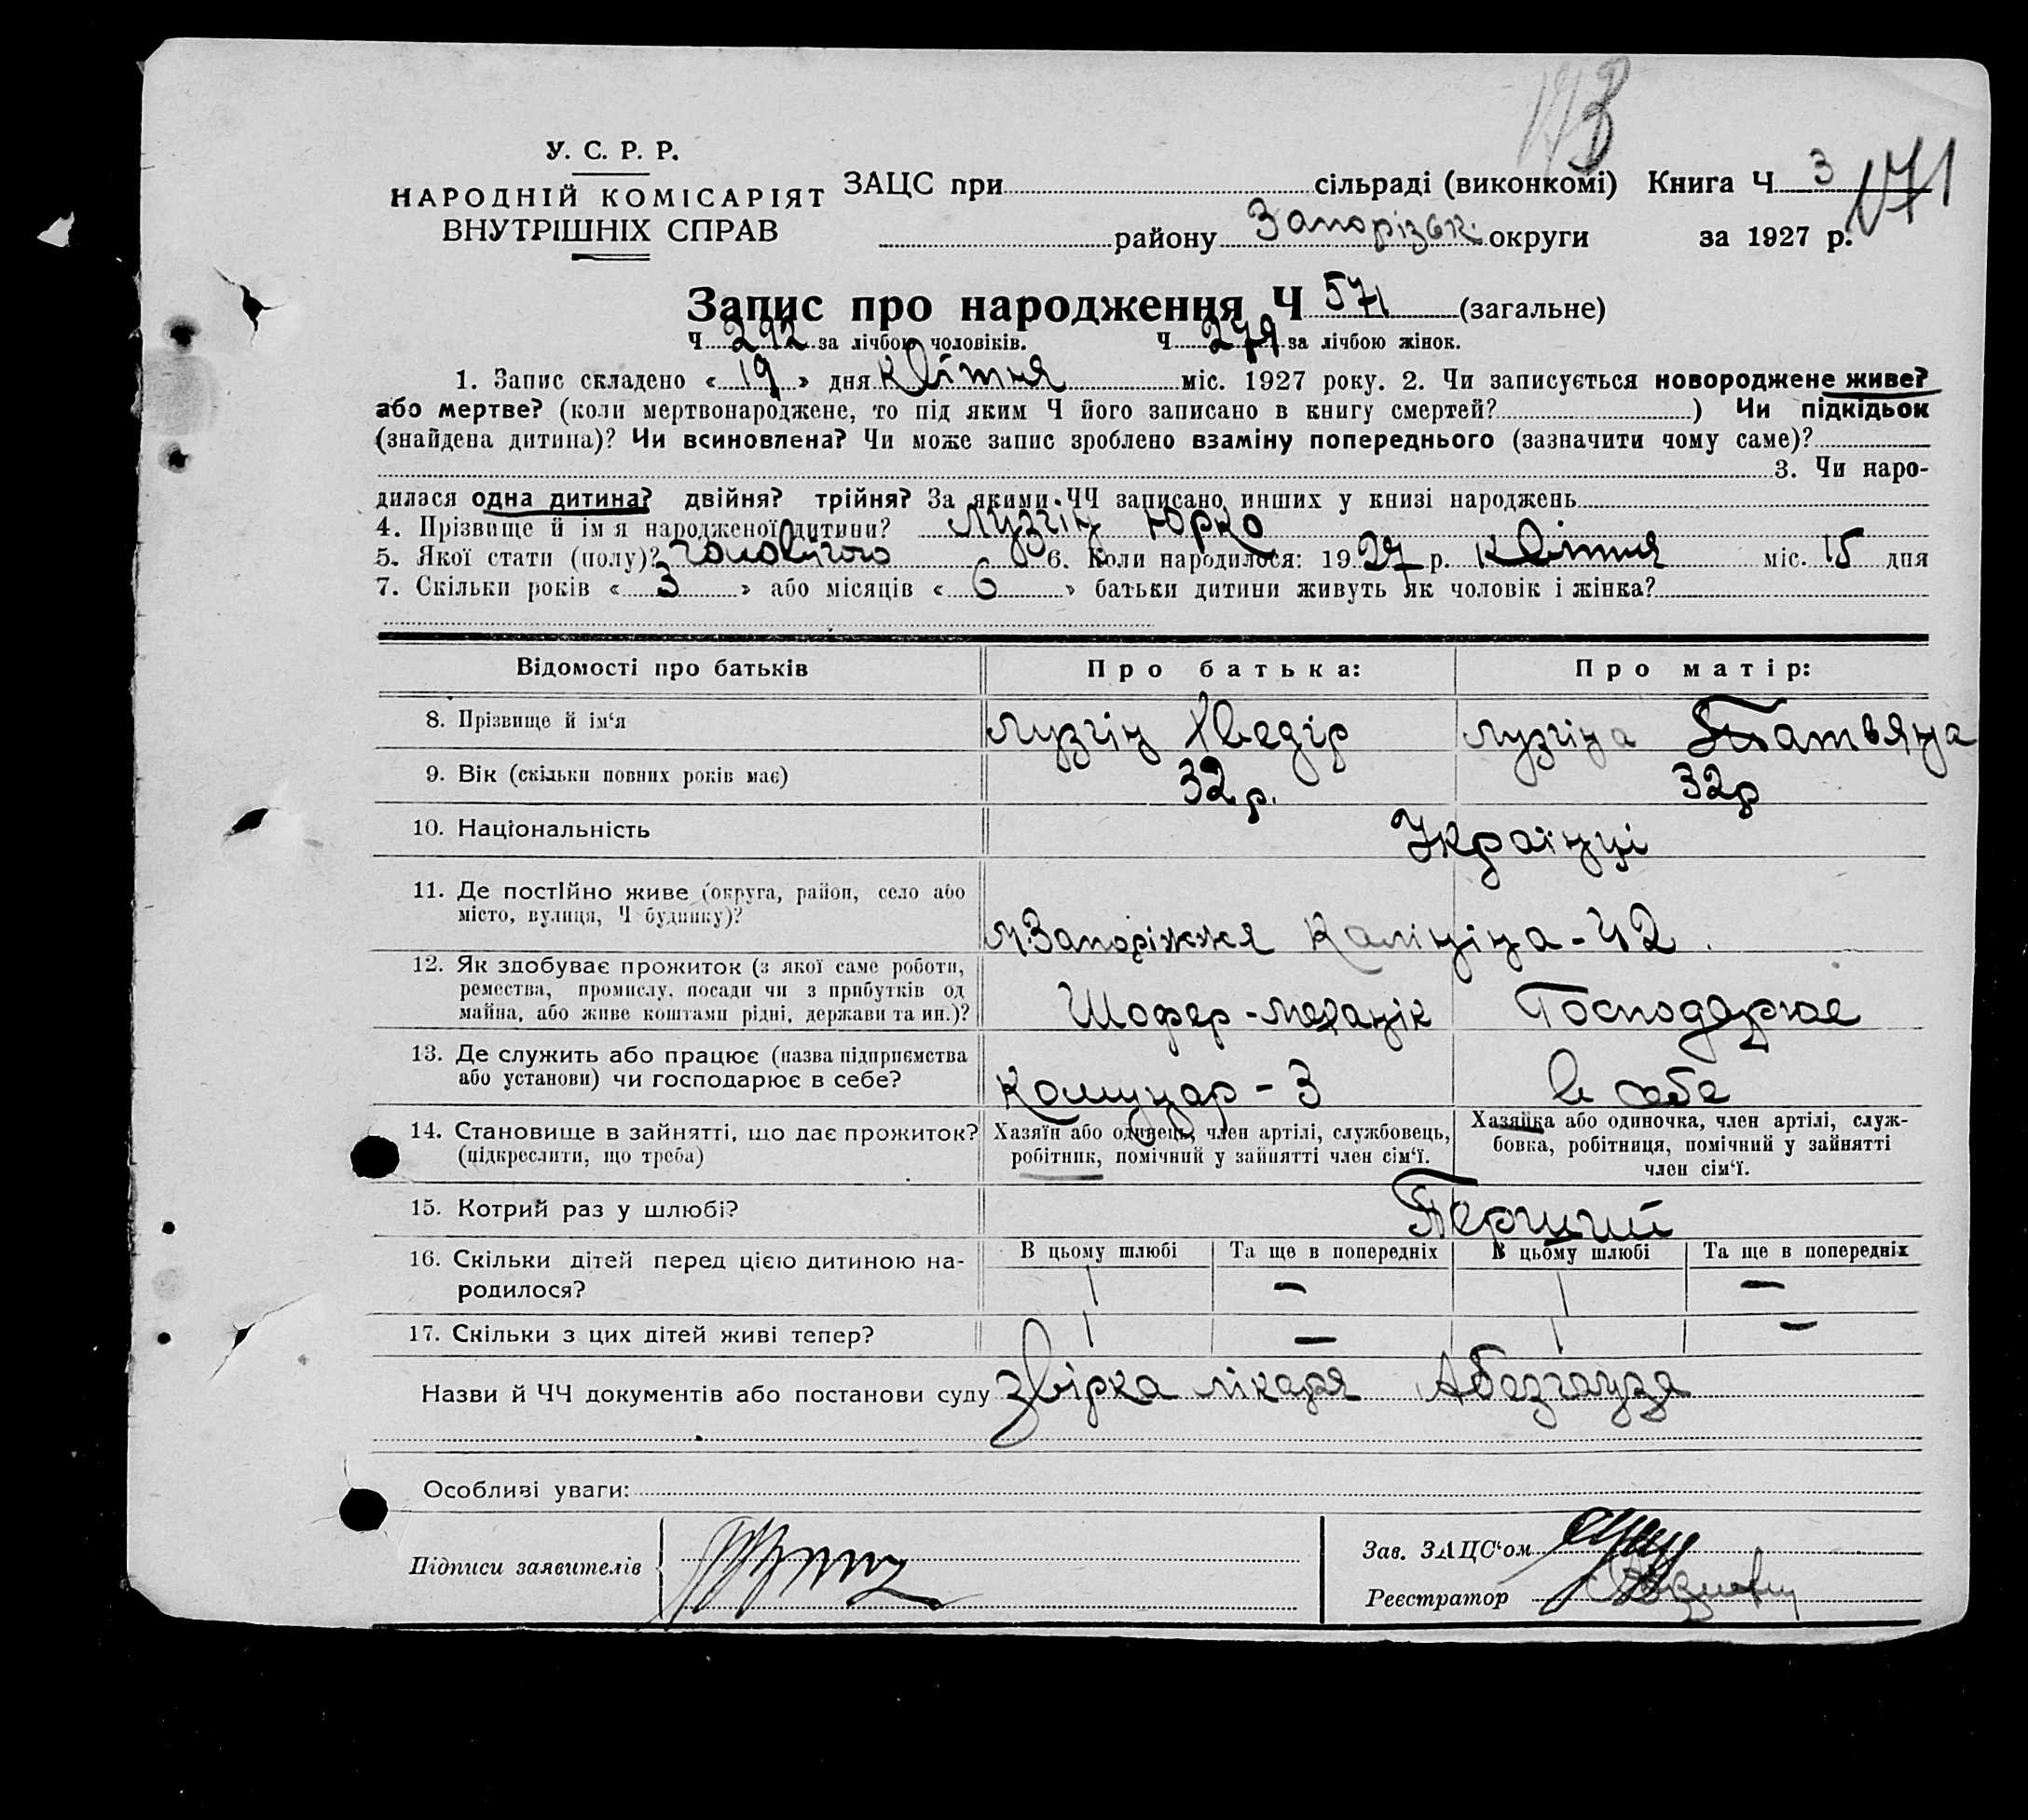 173
У. С. Р. Р.
НАРОДНІЙ КОМІСАРІЯТ
ВНУТРІШНІХ СПРАВ
ЗАЦС при сільраді (виконкомі) Книга Ч 3 171
району Запорізьк. округи за 1927 р.
Запис про народження Ч 571 (загальне)
Ч 292 за лічбою чоловіків. Ч 279 за лічбою жінок.
1. Запис складено « 19 » дня квітня міс. 1927 року. 2. Чи записується новороджене живе?
або мертве? (коли мертвонароджене, то під яким Ч його записано в книгу смертей? ) Чи підкідьок
(знайдена дитина)? Чи всиновлена? Чи може запис зроблено взаміну попереднього (зазначити чому саме)?
3. Чи наро-
дилася одна дитина? двійня? трійня? За якими ЧЧ записано инших у книзі народжень
4. Прізвище й ім я народженої дитини? Лузгін Юрко
5. Якої стати (полу)? чоловічого 6. Коли народилося: 1927 р. квітня міс. 15 дня
7. Скільки років « 3 » або місяців « 6 » батьки дитини живуть як чоловік і жінка?
Відомості про батьків Про батька: Про матір:
8. Прізвище й ім‘я Лузгін Хведір Лузгіна Татьяна
9. Вік (скільки повних років має) 32 р. 32 р
10. Національність Українці
11. Де постійно живе (округа, район, село або
місто, вулиця, Ч будинку)? м. Запоріжжя Калініна - 42.
12. Як здобуває прожиток (з якої саме роботи,
ремества, промислу, посади чи з прибутків од
майна, або живе коштами рідні, держави та ин.)? Шофер - механік Господарює
13. Де служить або працює (назва підприємства
або установи) чи господарює в себе? Комунар - 3 в себе
14. Становище в зайнятті, що дає прожиток?
(підкреслити, що треба)
Хазяїн або одинець, член артілі, службовець,
робітник, помічний у зайнятті член сім‘ї.
Хазяйка або одиночка, член артілі, служ-
бовка, робітниця, помічний у зайнятті
член сім‘ї.
15. Котрий раз у шлюбі? Перший
В цьому шлюбі Та ще в попередніх В цьому шлюбі Та ще в попередніх
16. Скільки дітей перед цією дитиною на-
родилося? 1 — 1 —
17. Скільки з цих дітей живі тепер? 1 — 1 —
Назви й ЧЧ документів або постанови суду звірка лікаря Абезгауза
Особливі уваги:
Підписи заявителів
Зав. ЗАЦС‘ом
Реєстратор